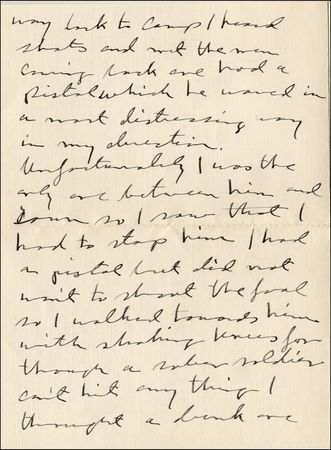 way back to camp I heard
shots and met the men
coming back one had a
pistol which he waved in
a most distressing way
in my direction.
Unfortunately I was the
only one between him and
town so I saw that I
had to stop him I had
a pistol but did not
want to shoot the fool
so I walked towards him
with shaking knees for
though a sober soldier
can't hit any thing I
thought a drunk one